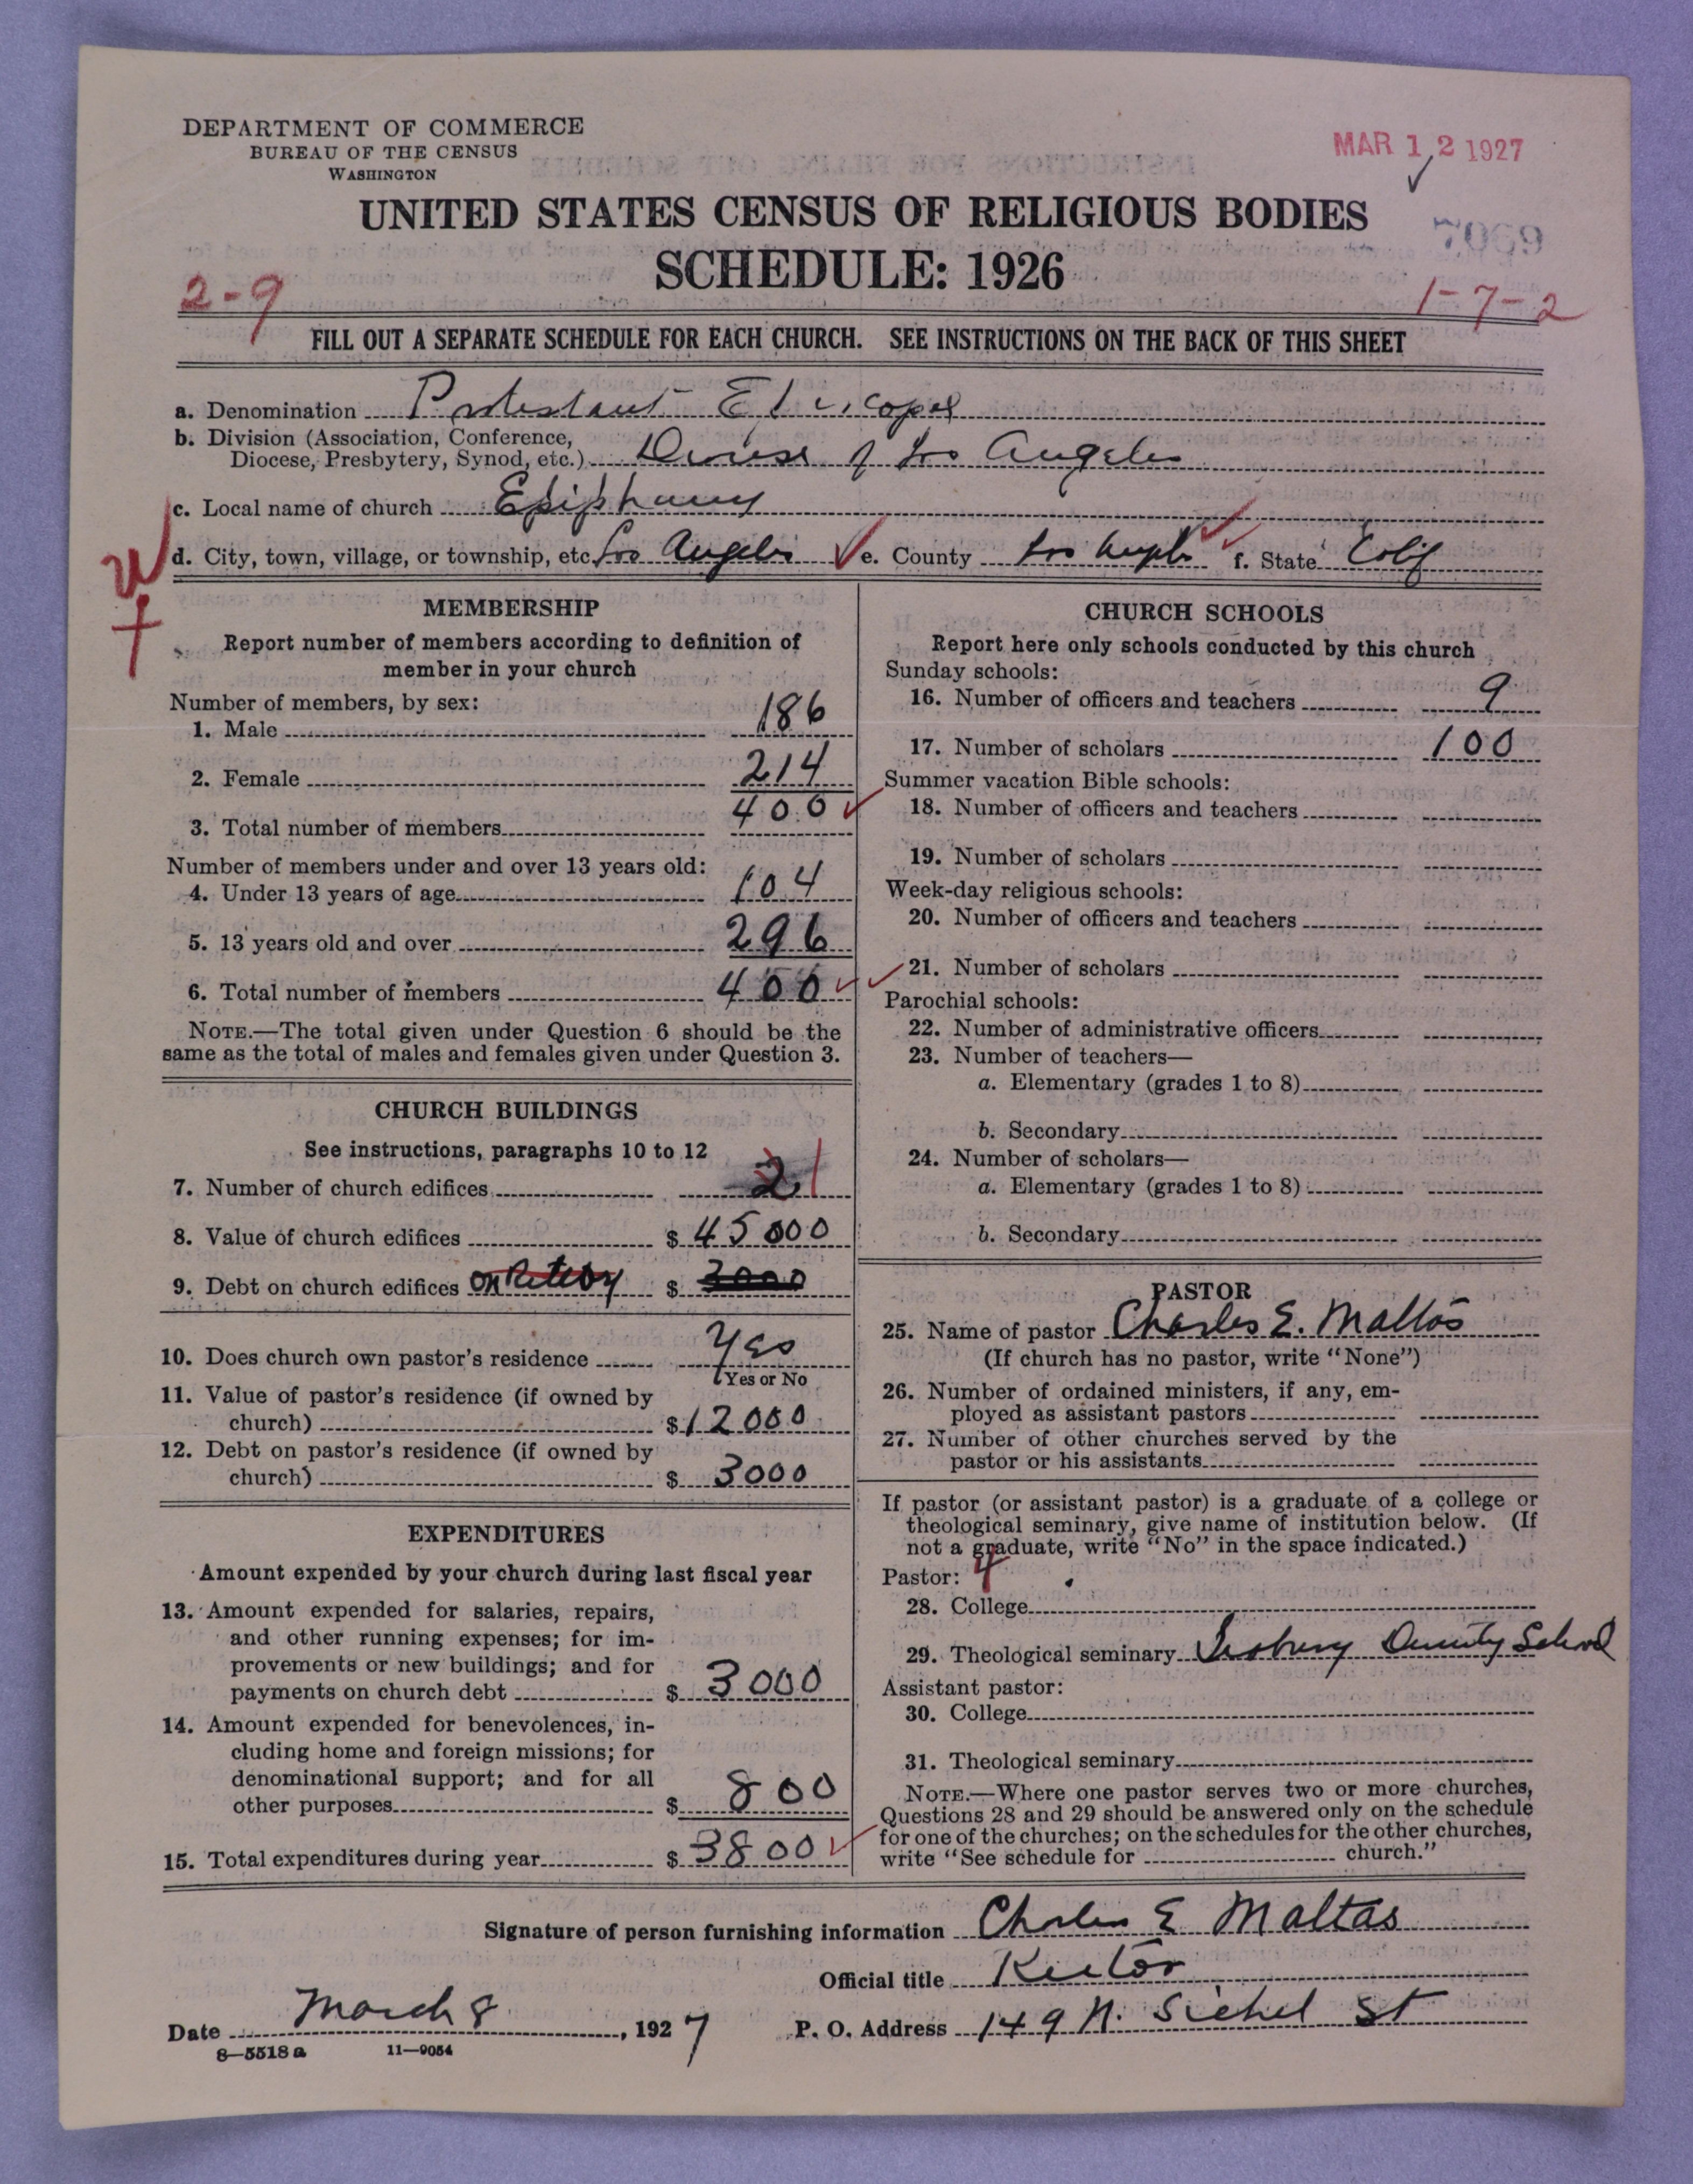 DEPARTMENT OF COMMERCE
BUREAU OF THE CENSUS
WASHINGTON
MAR 12 1927
UNITED STATES CENSUS OF RELIGIOUS BODIES
SCHEDULE: 1926
2-9
1-7-2
FILL OUT A SEPARATE SCHEDULE FOR EACH CHURCH. SEE INSTRUCTIONS ON THE BACK OF THIS SHEET
a. Denomination Protestant Episcopal
b. Division (Association, Conference,
Diocese, Presbytery, Synod, etc.) Diocese of Los Angeles
c. Local name of church Epiphany
d. City, town, village, or township, etc. Los Angeles e. County Los Angeles f. State Calif
MEMBERSHIP
Report number of members according to definition of
member in your church
Number of members, by sex:
1. Male 186
2. Female 214
3. Total number of members 400
Number of members under and over 13 years old:
4. Under 13 years of age 104
5. 13 years old and over 296
6. Total number of members 400
NOTE.—The total given under Question 6 should be the
same as the total of males and females given under Question 3.
CHURCH BUILDINGS
See instructions, paragraphs 10 to 12
7. Number of church edifices 2 1
8. Value of church edifices $ 45000
9. Debt on church edifices on Rectory $ 3000
10. Does church own pastor's residence Yes
Yes or No
11. Value of pastor's residence (if owned by
church) $ 12000
12. Debt on pastor's residence (if owned by
church) $ 3000
EXPENDITURES
Amount expended by your church during last fiscal year
13. Amount expended for salaries, repairs,
and other running expenses; for im-
provements or new buildings; and for
payments on church debt $ 3000
14. Amount expended for benevolences, in-
cluding home and foreign missions; for
denominational support; and for all
other purposes $ 800
15. Total expenditures during year $ 3800
CHURCH SCHOOLS
Report here only schools conducted by this church
Sunday schools:
16. Number of officers and teachers 9
17. Number of scholars 100
Summer vacation Bible schools:
18. Number of officers and teachers
19. Number of scholars
Week-day religious schools:
20. Number of officers and teachers
21. Number of scholars
Parochial schools:
22. Number of administrative officers
23. Number of teachers—
a. Elementary (grades 1 to 8)
b. Secondary
24. Number of scholars—
a. Elementary (grades 1 to 8)
b. Secondary
PASTOR
25. Name of pastor Charles E. Maltas
(If church has no pastor, write "None")
26. Number of ordained ministers, if any, em-
ployed as assistant pastors
27. Number of other churches served by the
pastor or his assistants
If pastor (or assistant pastor) is a graduate of a college or
theological seminary, give name of institution below. (If
not a graduate, write "No" in the space indicated.)
Pastor: 4
28. College
29. Theological seminary Seabury Divinity School
Assistant pastor:
30. College
31. Theological seminary
NOTE.—Where one pastor serves two or more churches,
Questions 28 and 29 should be answered only on the schedule
for one of the churches; on the schedules for the other churches,
write "See schedule for church."
Signature of person furnishing information Charles E Maltas
Official title Rector
Date March 8, 1927 P. O. Address 149 N. Sichel St
8—5518a 11—9054